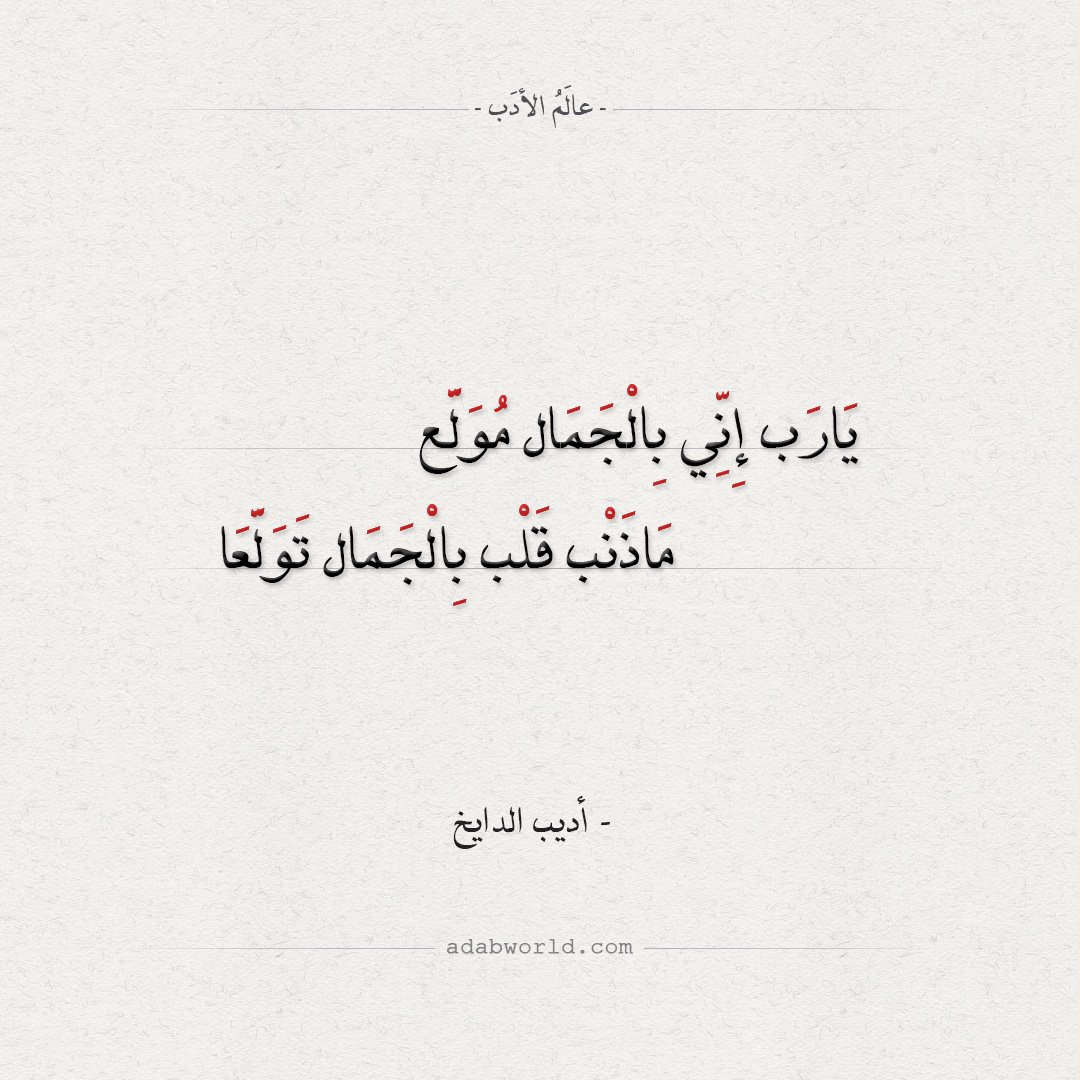 - عالَمُ الأدَب -
يَارَب إِنِّي بِالْجَمَال مُوَلّع
مَاذَنْب قَلْب بِالْجَمَال تَوَلّعَا
- أديب الدايخ
adabworld.com